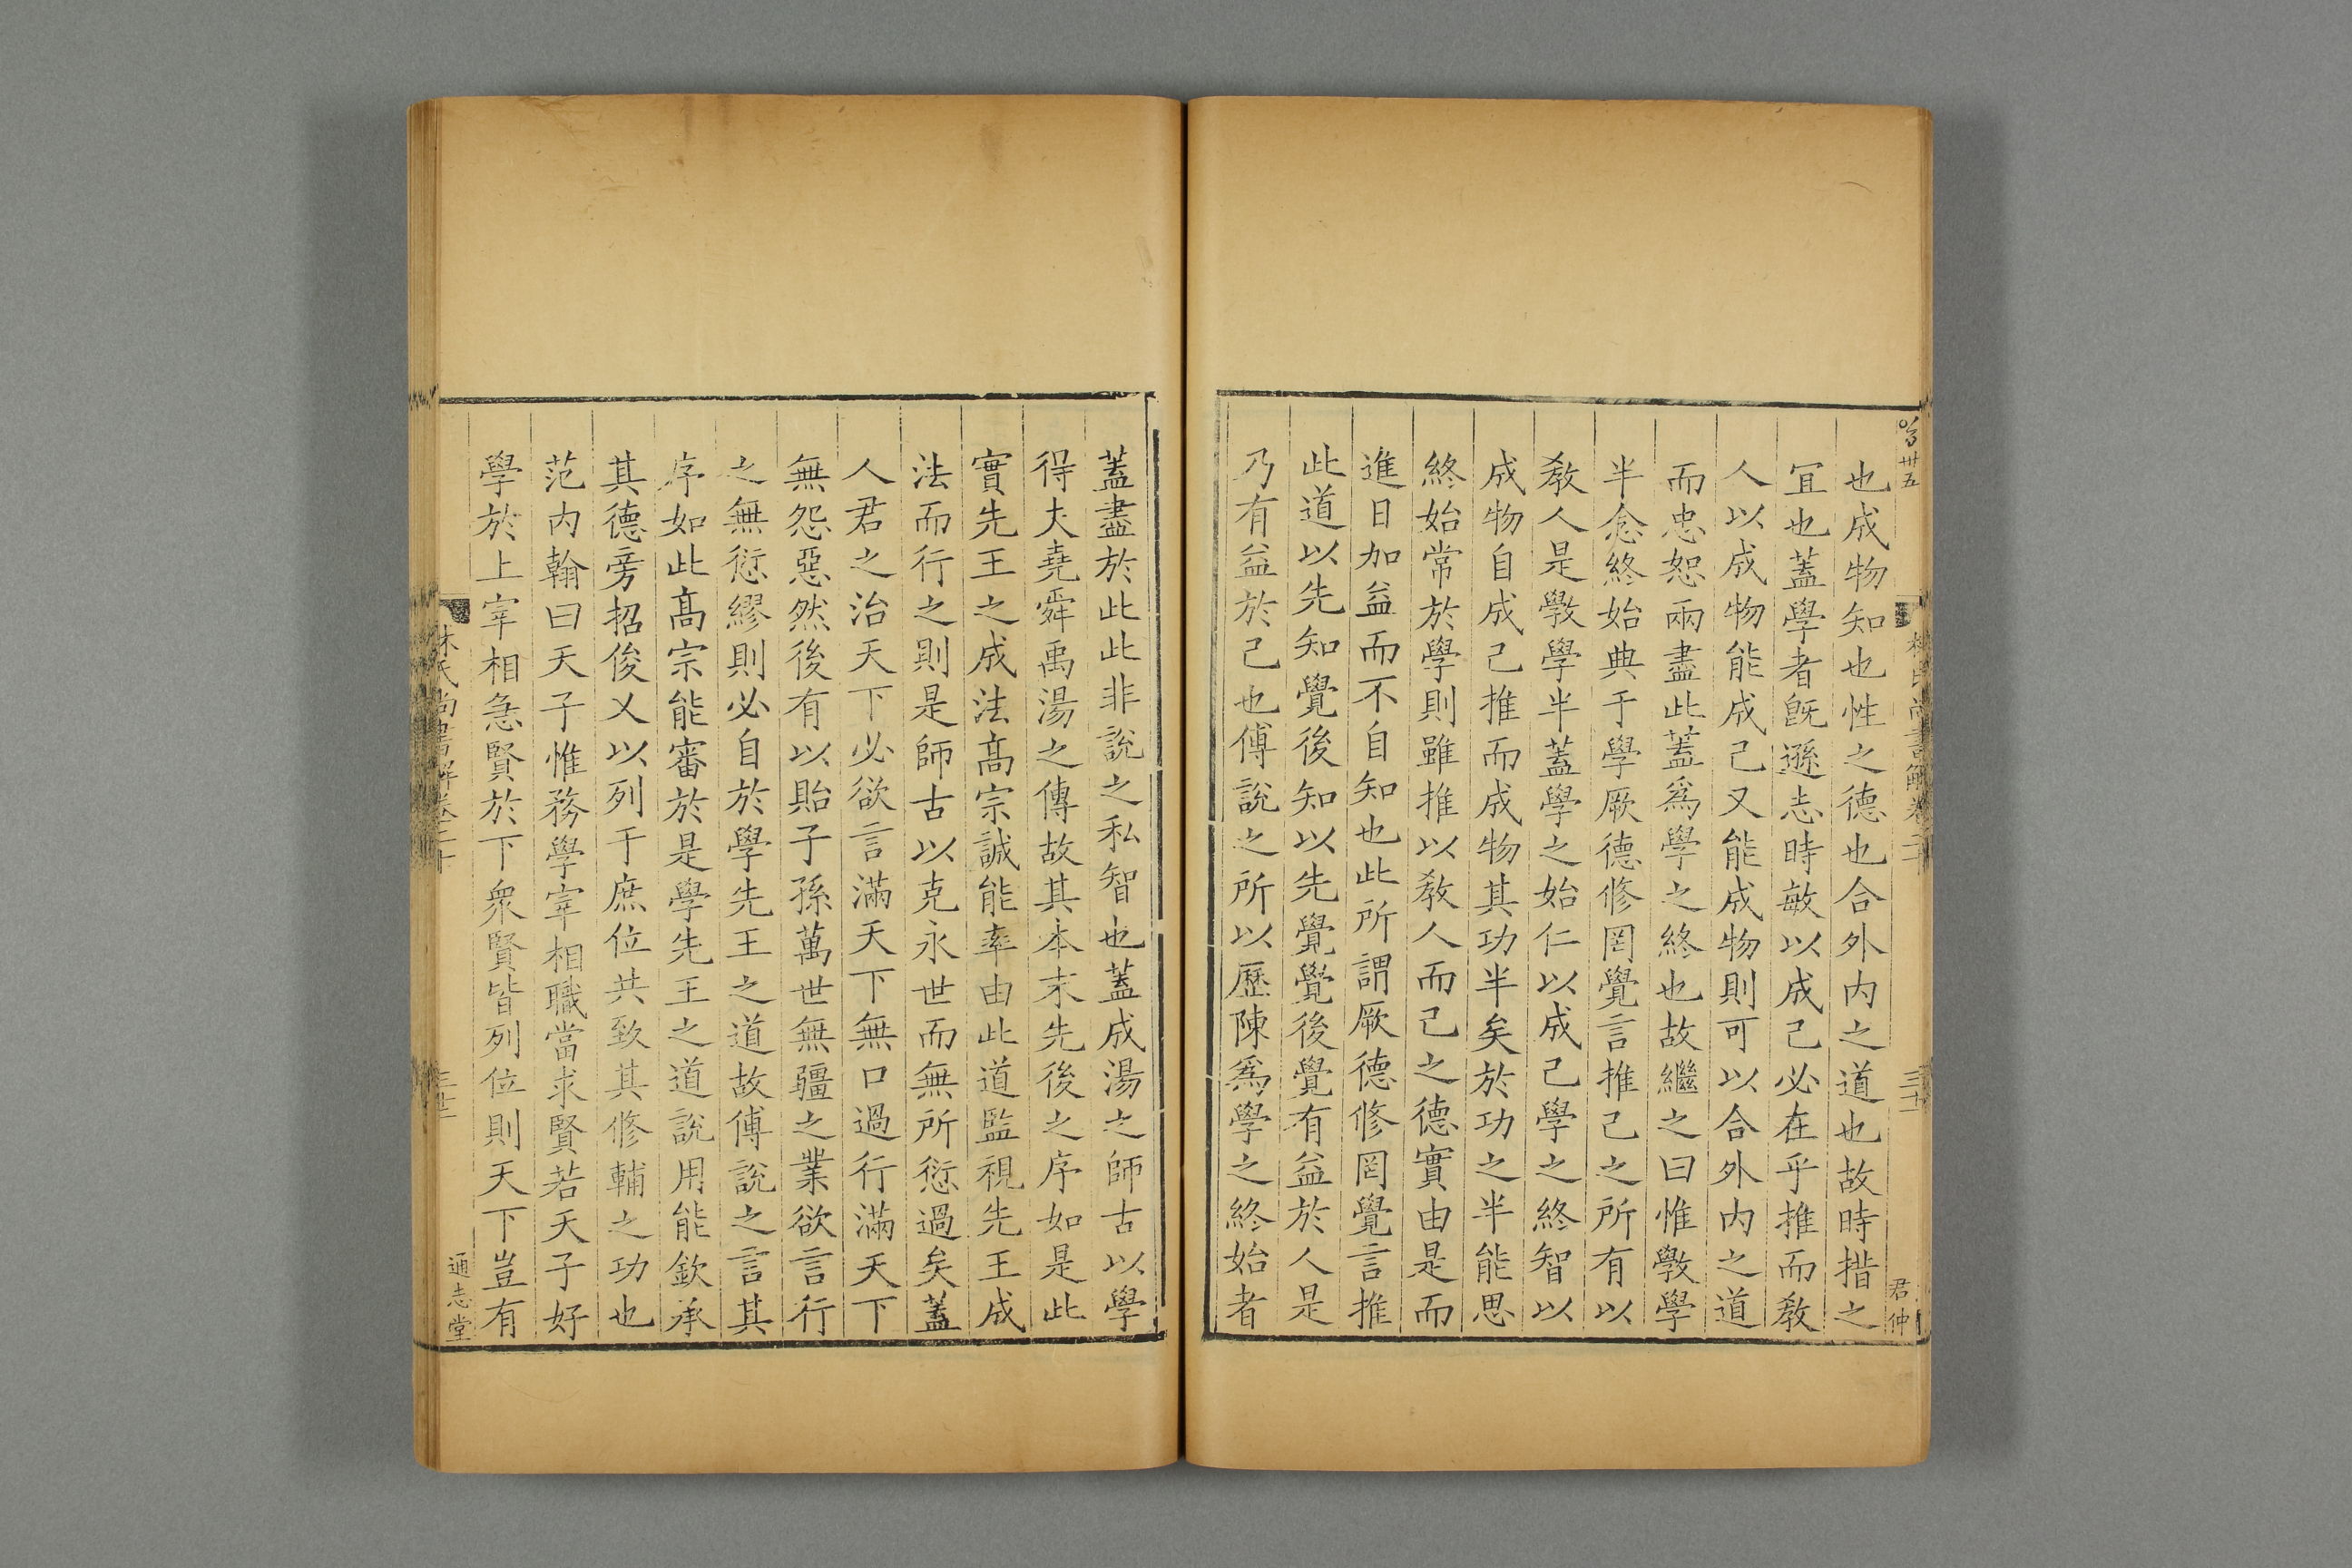 也成物知也性之德也合外内之道也故時措之
冝也蓋學者旣遜志時敏以成己必在乎推而敎
人以成物能成己又能成物則可以合外内之道
而忠恕兩盡此蓋爲學之終也故繼之曰惟斆學
半念終始典于學厥德修罔覺言推己之所有以
敎人是斆學半蓋學之始仁以成己學之終智以
成物自成己推而成物其功半矣於功之半能思
終始常於學則雖推以敎人而己之德實由是而
進日加益而不自知也此所謂厥德修罔覺言推
此道以先知覺後知以先覺覺後覺有益於人是
乃有益於己也傅說之所以歷陳爲學之終始者
君仲
蓋盡於此此非說之私智也蓋成湯之師古以學
得大堯舜禹湯之傳故其本末先後之序如是此
實先王之成法高宗誠能率由此道監視先王成
法而行之則是師古以克永世而無所愆過矣蓋
人君之治天下必欲言滿天下無口過行滿天下
無怨惡然後有以貽子孫萬世無疆之業欲言行
之無愆繆則必自於學先王之道故傅說之言其
序如此高宗能審於是學先王之道說用能欽承
其德旁招俊乂以列于庶位共致其修輔之功也
范内翰曰天子惟務學宰相職當求賢若天子好
學於上宰相急賢於下衆賢皆列位則天下豈有
林氏尚書解卷二十
通志堂